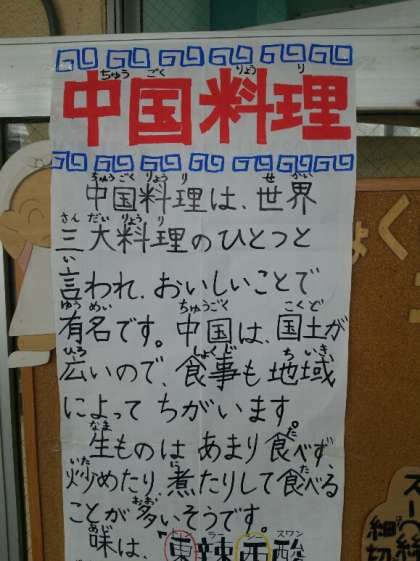 中国料理
中国料理は、世界
三大料理のひとつと
言われ、おいしいことで
有名です。中国は、国土が
広いので、食事も地域
によってちがいます。
生ものはあまり食べず、
炒めたり煮たりして食べる
ことが多いそうです。
味は、「東辣西酸
く
スー
細切